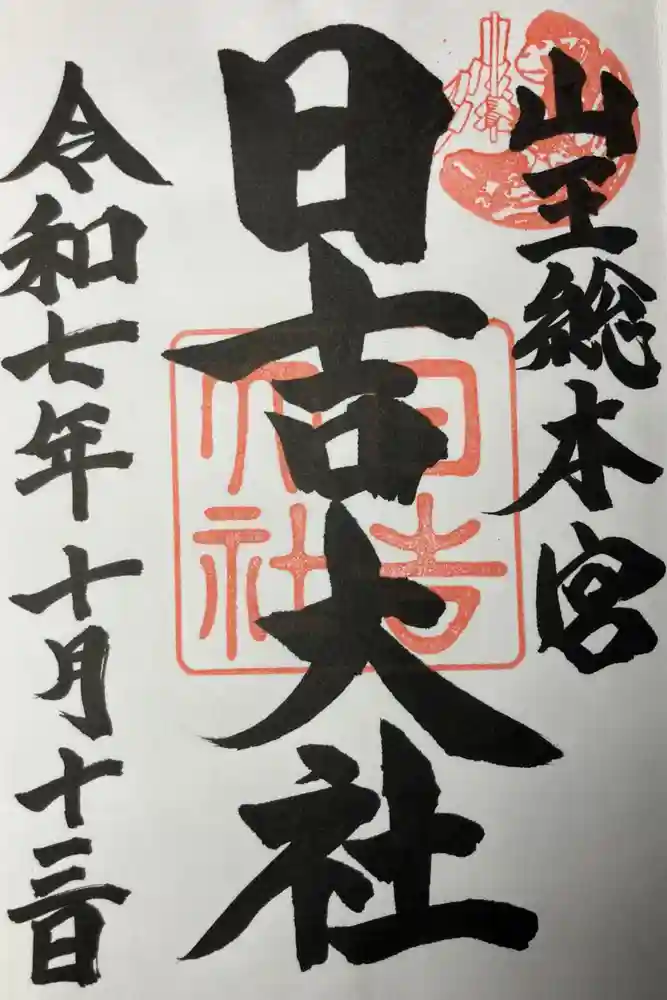 山王総本宮
日吉大社
日吉
大社
令和七年十月十三日